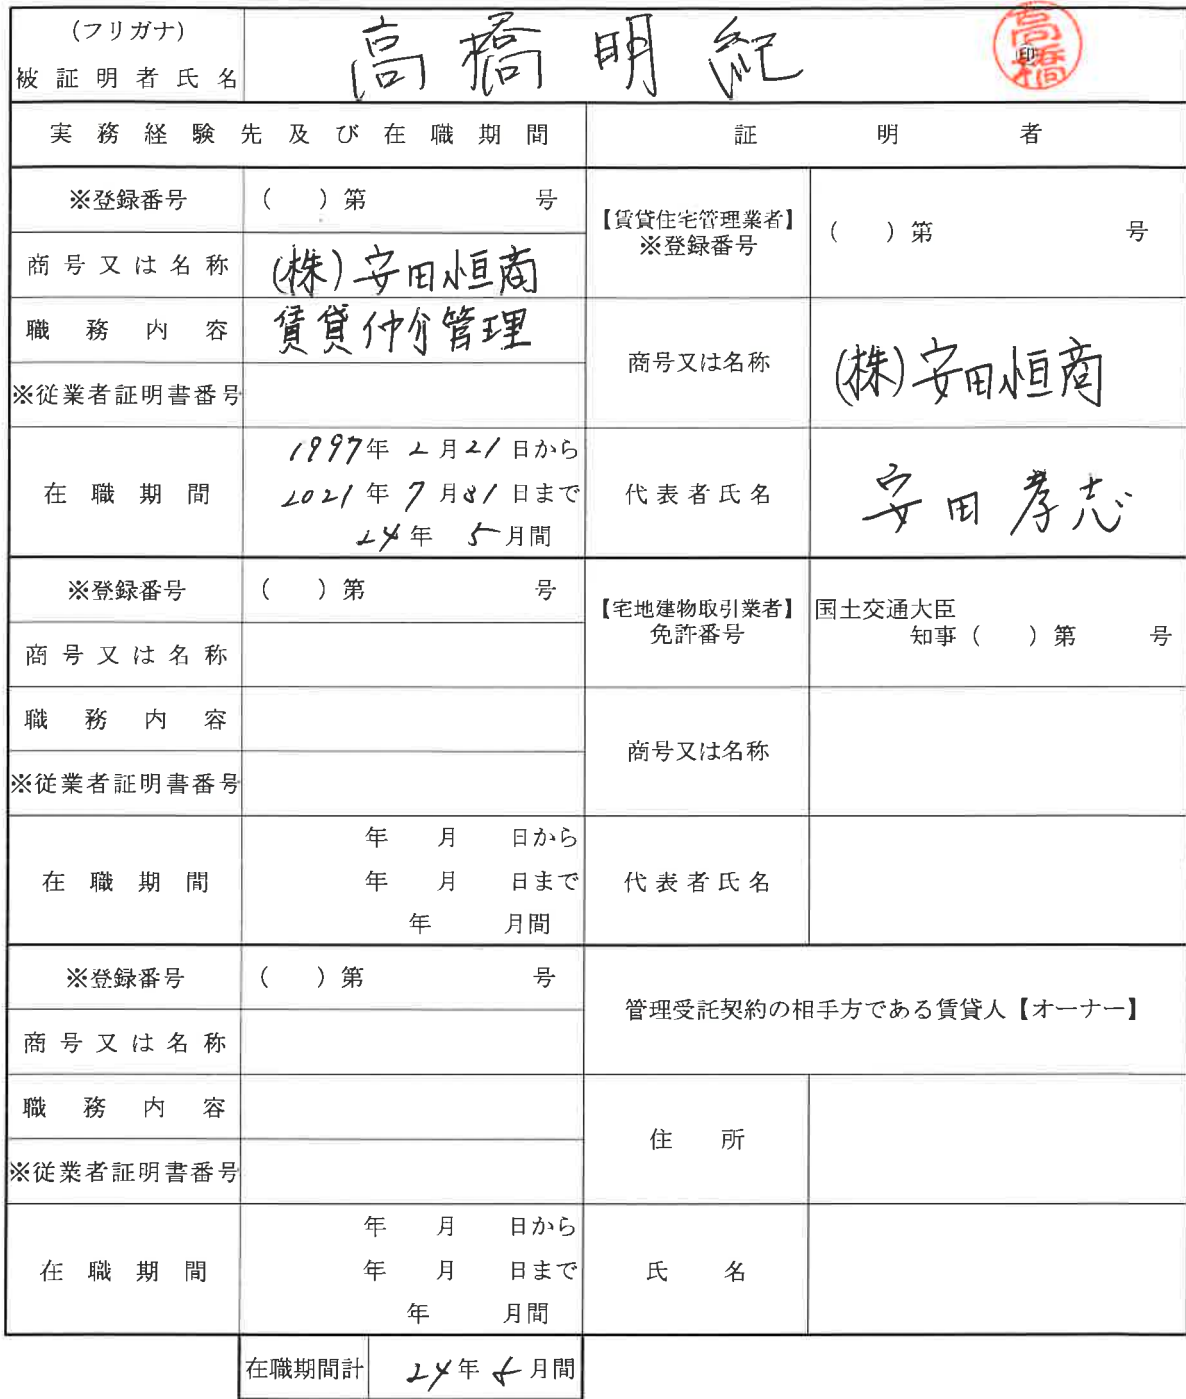 (フリガナ)
被証明者氏名 高橋明紀 印 高橋
実務経験先及び在職期間 証明者
※登録番号 ( )第 号
商号又は名称 (株)安田恒商
職務内容 賃貸仲介管理
※従業者証明書番号
在職期間 1997年2月21日から
2021年7月31日まで
24年5月間
【賃貸住宅管理業者】
※登録番号 ( )第 号
商号又は名称 (株)安田恒商
代表者氏名 安田孝志
※登録番号 ( )第 号
商号又は名称
職務内容
※従業者証明書番号
在職期間 年 月 日から
年 月 日まで
年 月間
【宅地建物取引業者】 国土交通大臣
免許番号 知事( )第 号
商号又は名称
代表者氏名
※登録番号 ( )第 号
商号又は名称
職務内容
※従業者証明書番号
在職期間 年 月 日から
年 月 日まで
年 月間
管理受託契約の相手方である賃貸人【オーナー】
住所
氏名
在職期間計 24年5月間